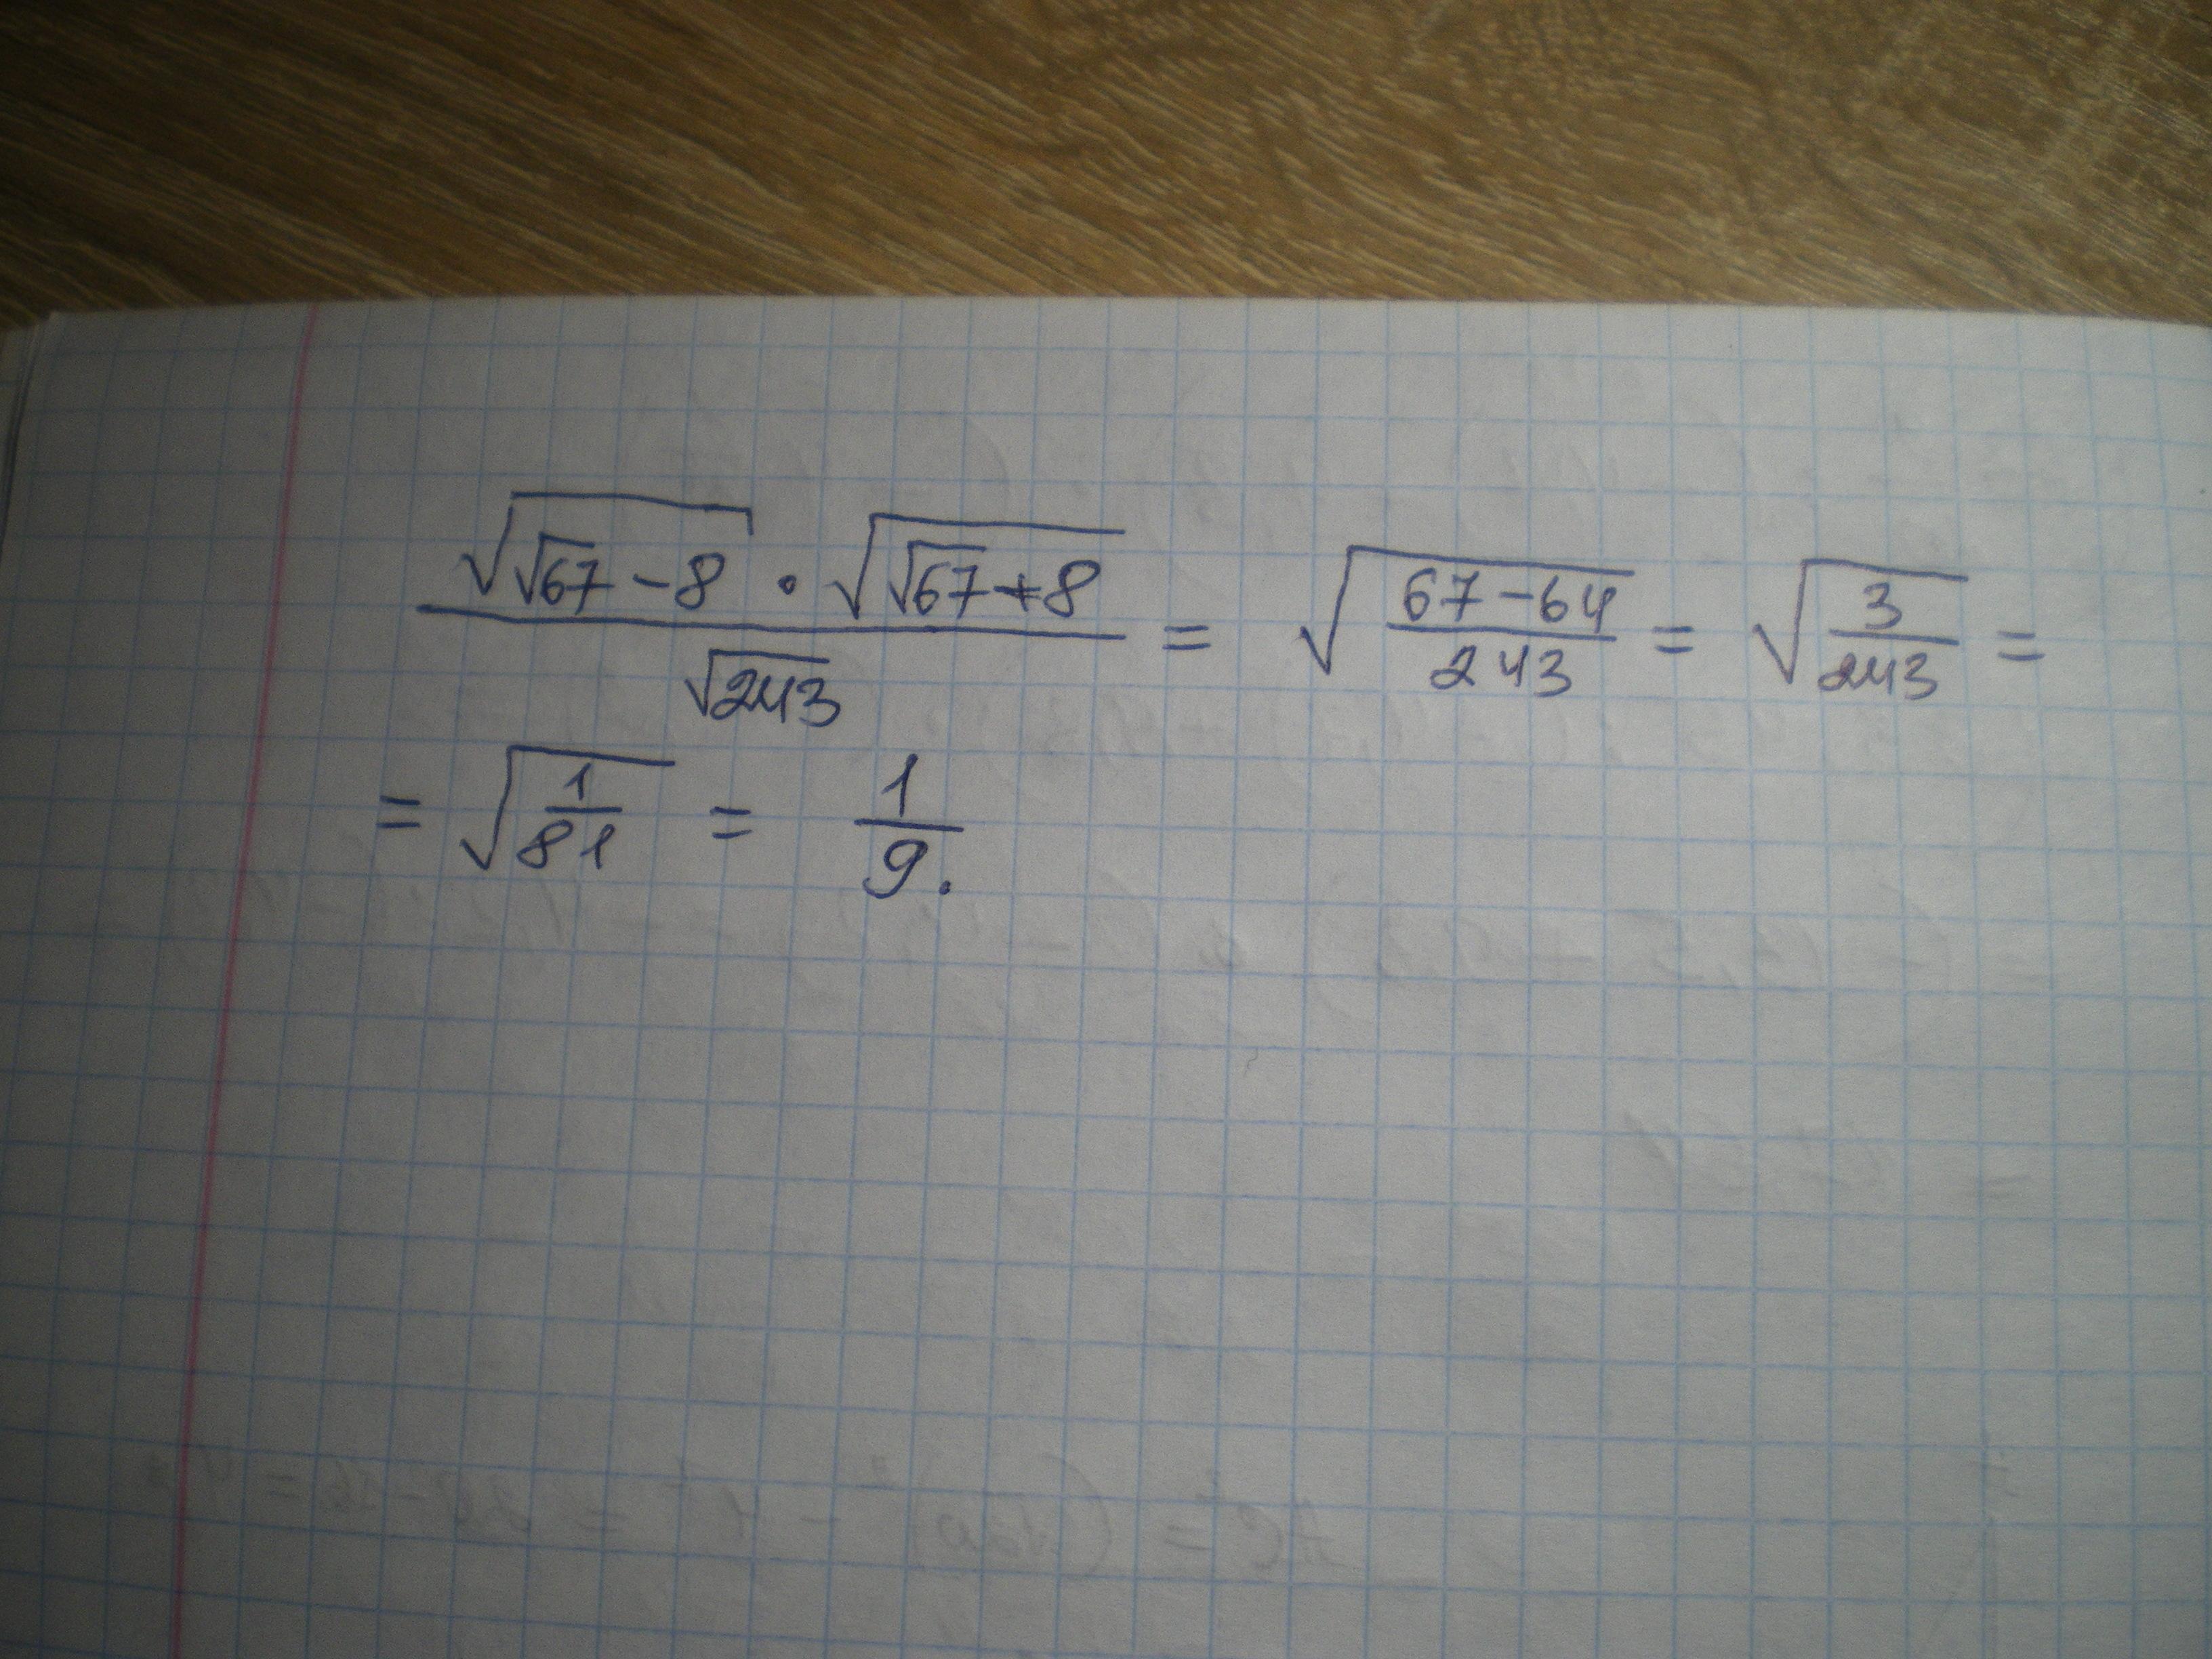 √(√67 − 8) · √(√67 + 8) / √243 = √((67 − 64) / 243) = √(3 / 243) =
= √(1 / 81) = 1 / 9.